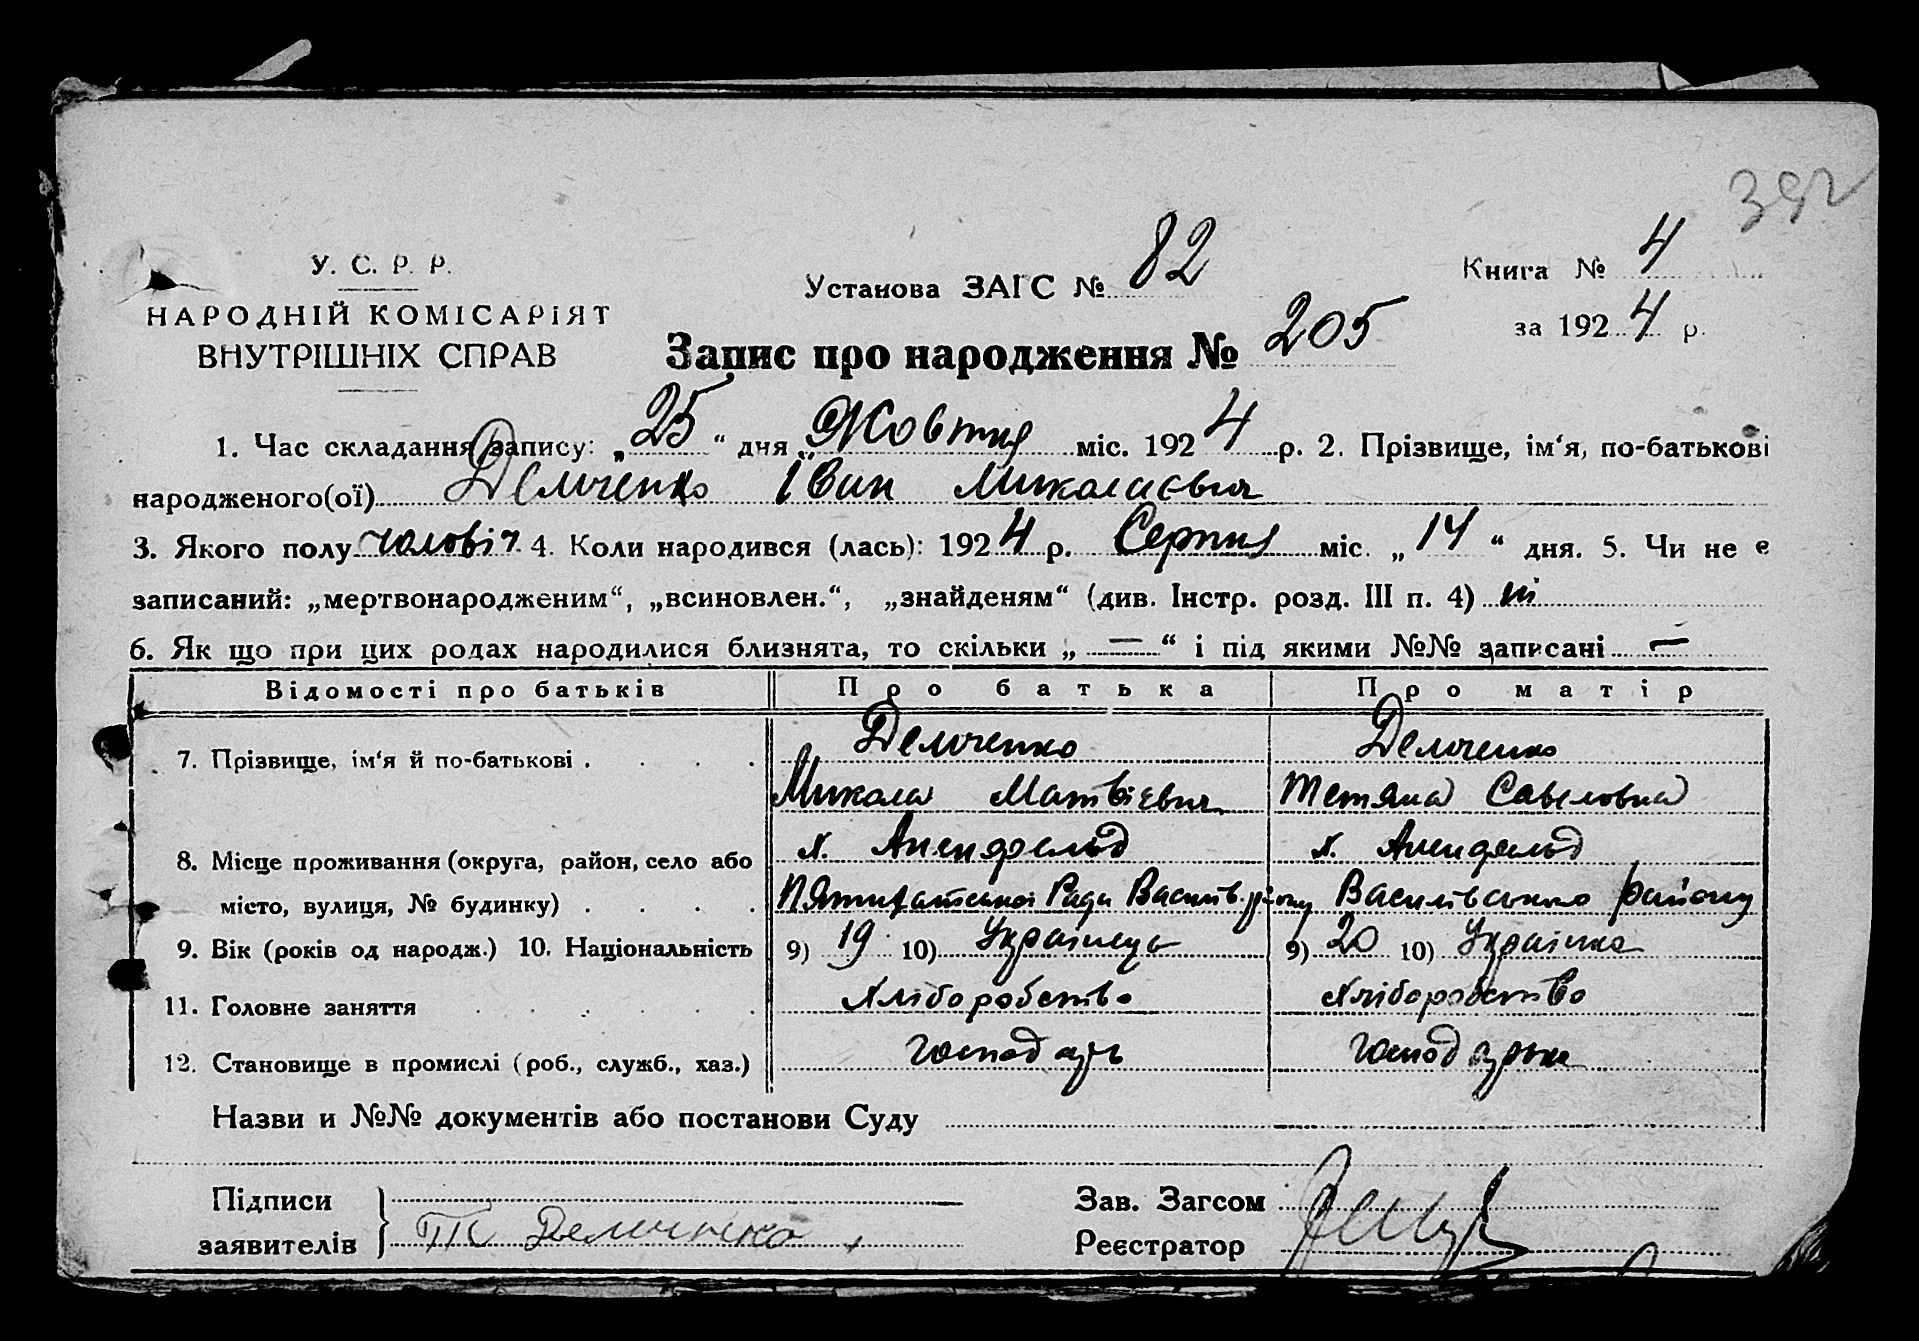 392
У. С. Р. Р.
НАРОДНІЙ КОМІСАРІЯТ
ВНУТРІШНІХ СПРАВ
Установа ЗАГС № 82
Книга № 4
за 1924 р.
Запис про народження № 205
1. Час складання запису: „25“ дня Жовтня міс. 1924 р. 2. Прізвище, ім‘я, по-батькові
народженого(ої) Демченко Іван Миколаєвич
3. Якого полу чоловіч 4. Коли народився (лась): 1924 р. Серпня міс. „14“ дня. 5. Чи не є
записаний: „мертвонародженим“, „всиновлен.“, „знайденям“ (див. Інстр. розд. III п. 4) ні
6. Як що при цих родах народилися близнята, то скільки „ — “ і під якими №№ записані —
Відомості про батьків Про батька Про матір
7. Прізвище, ім‘я й по-батькові . . . . Демченко Демченко
Микола Матвієвич Тетяна Савеловна
8. Місце проживання (округа, район, село або х. Аненфельд х. Аненфельд
місто, вулиця, № будинку) . . . . Ради Василів. р-ону Василівського району
9. Вік (років од народж.) 10. Національність 9) 19 10) Українець 9) 20 10) Українка
11. Головне заняття . . . . . . Хліборобство Хліборобство
12. Становище в промислі (роб., служб., хаз.) господарь господарька
Назви и №№ документів або постанови Суду
Підписи
заявителів } Демченко
Зав. Загсом
Реєстратор